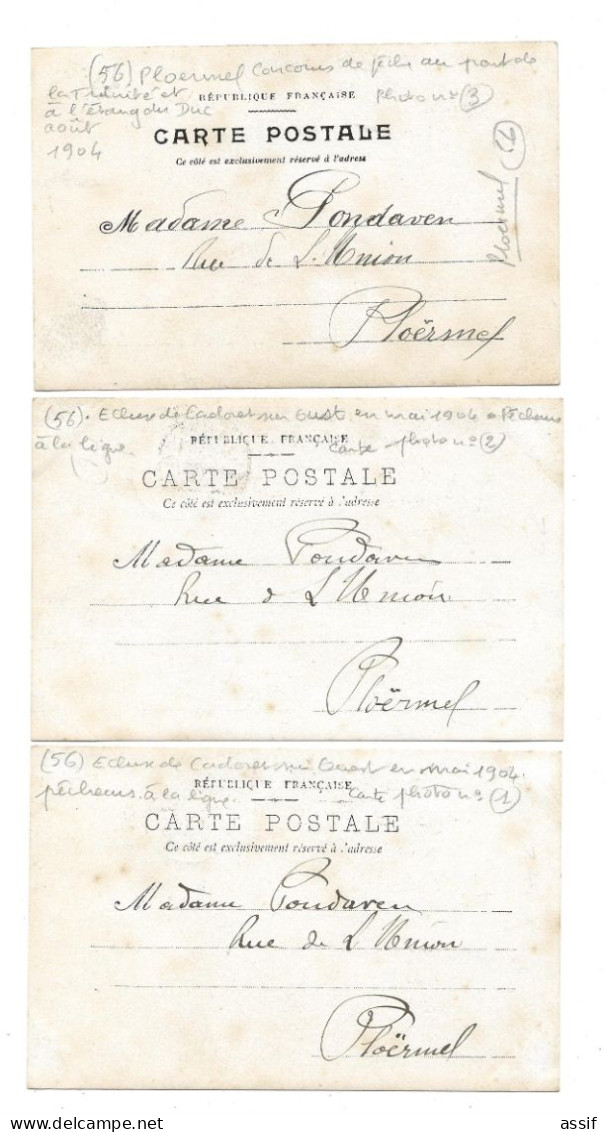 (56) Ploermel Concours de pêche au pont de
la Trinité et
à l'étang du Duc
août
1904
RÉPUBLIQUE FRANÇAISE
photo n° (3)
CARTE POSTALE
Ce côté est exclusivement réservé à l'adresse
Ploermel
Madame Pondaven
Rue de L'Union
Ploërmel
(56). Ecluse de Cadoret sur Oust, en mai 1904 Pêcheurs
à la ligne.
RÉPUBLIQUE FRANÇAISE
Carte photo n° (2)
CARTE POSTALE
Ce côté est exclusivement réservé à l'adresse
Madame Pondaven
Rue de L'Union
Ploërmel
(56) Ecluse de Cadoret sur Oust en mai 1904.
pêcheurs à la ligne.
RÉPUBLIQUE FRANÇAISE
Carte photo n° (1)
CARTE POSTALE
Ce côté est exclusivement réservé à l'adresse
Madame Pondaven
Rue de L'Union
Ploërmel
assif